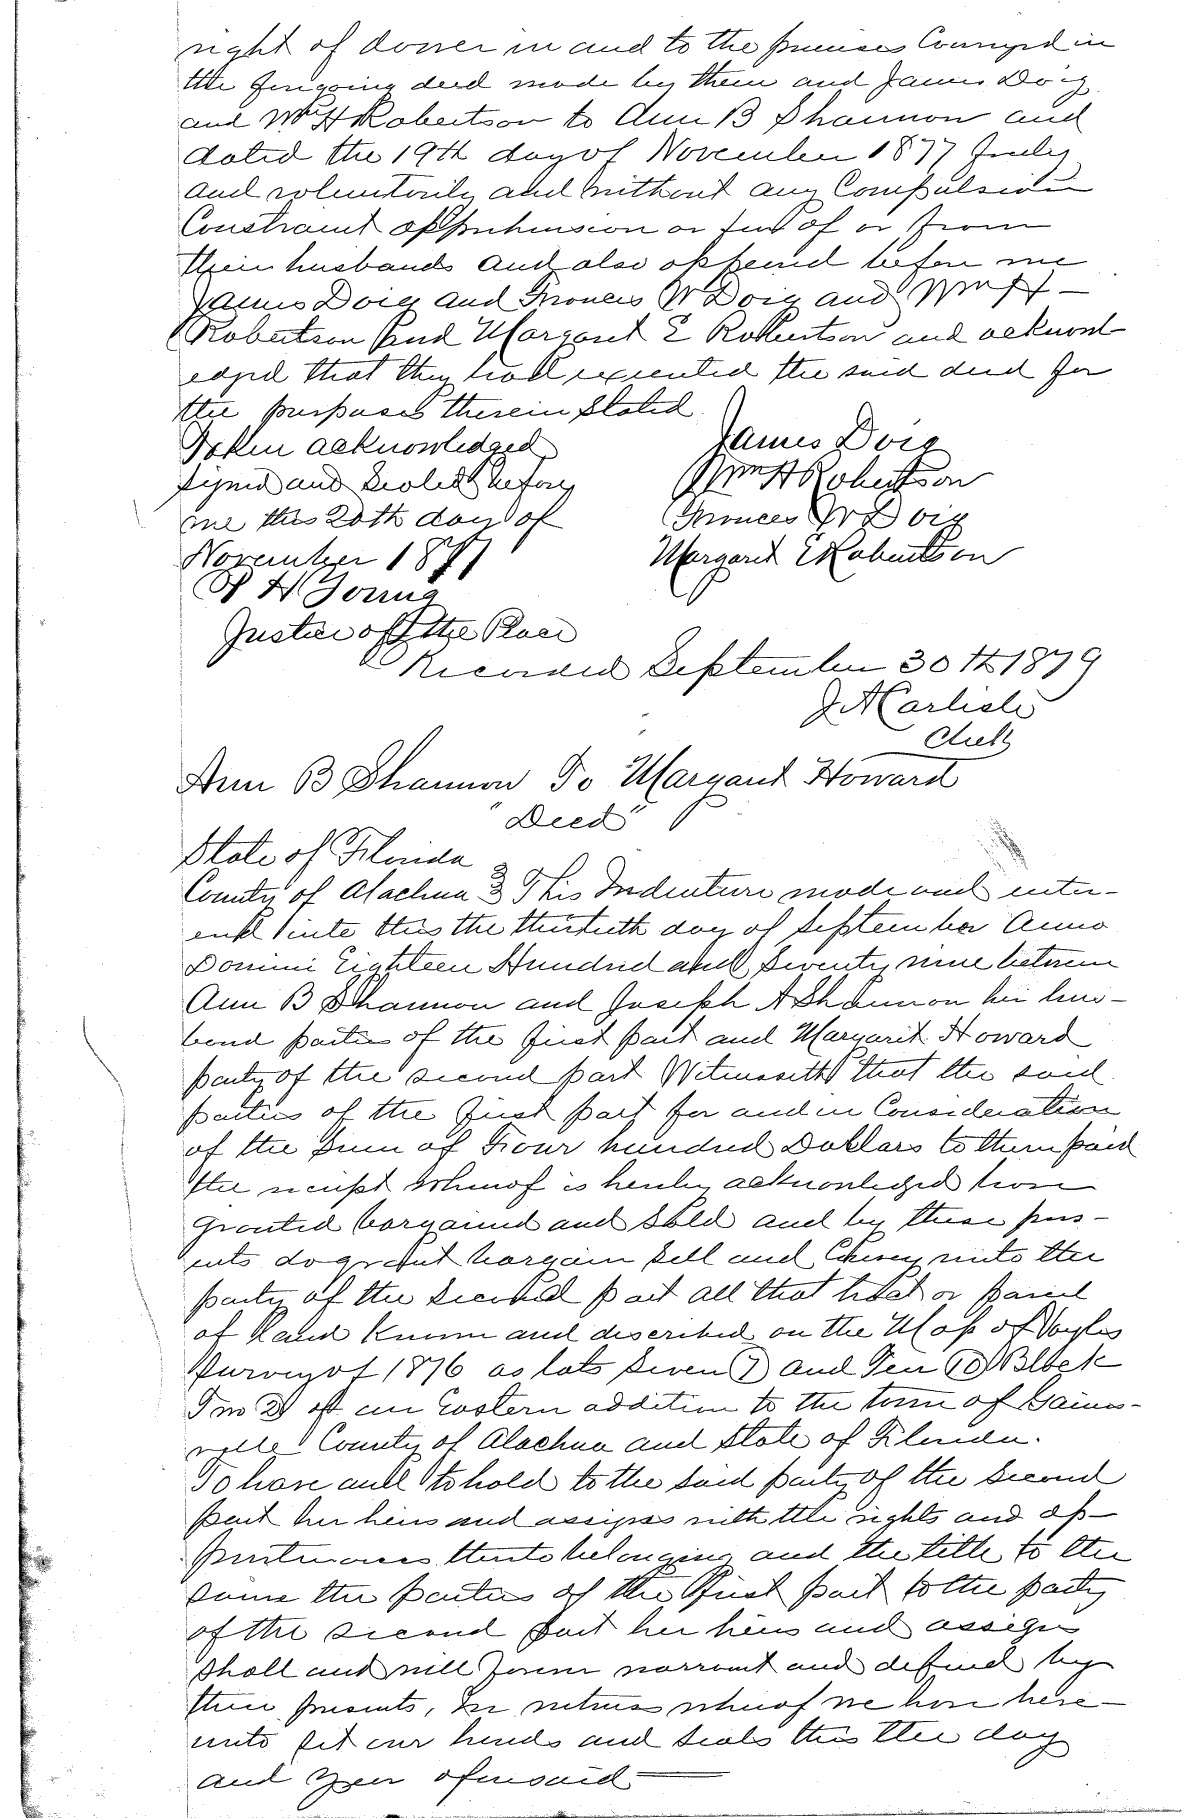 right of dower in and to the premises Conveyed in
the foregoing deed made by them and James Doig
and Wm H Robertson to Ann B Shannon and
dated the 19th day of November 1877 freely
and voluntarily and without any Compulsion
Constraint apprehension or fear of or from
their husbands and also appeared before me
James Doig and Frances W Doig and Wm H -
Robertson and Margaret E Robertson and acknowl
edged that they had executed the said deed for
the purposes therein Stated.
Taken acknowledged
James Doig
signed and Sealed before
Wm H Robertson
me this 20th day of
Frances W Doig
November 1877
Margaret E Robertson
H Young
Justice of the Peace
Recorded September 30th 1879
J A Carlisle
Clerk
Ann B Shannon To Margaret Howard
"Deed"
State of Florida
County of Alachua } This Indenture made and enter-
ed into this the thirtieth day of September Anno
Domini Eighteen Hundred and Seventy nine between
Ann B Shannon and Joseph A Shannon her hus-
band parties of the first part and Margaret Howard
party of the second part Witnesseth that the said
parties of the first part for and in Consideration
of the Sum of Four hundred Dollars to them paid
the receipt whereof is hereby acknowledged have
granted bargained and Sold and by these pres-
ents do grant bargain Sell and Convey unto the
party of the Second part all that tract or parcel
of Land Known and described on the Map of Voyles
Survey of 1876 as lots Seven (7) and Ten (10) Block
Two 2 of an Eastern addition to the town of Gaines-
ville County of Alachua and State of Florida.
To have and to hold to the Said party of the Second
part her heirs and assigns with the rights and ap-
purtenances thereto belonging and the title to the
same the parties of the first part to the party
of the second part her heirs and assigns
Shall and will forever warrant and defend by
these presents, In witness whereof we have here-
unto set our hands and seals this the day
and year aforesaid